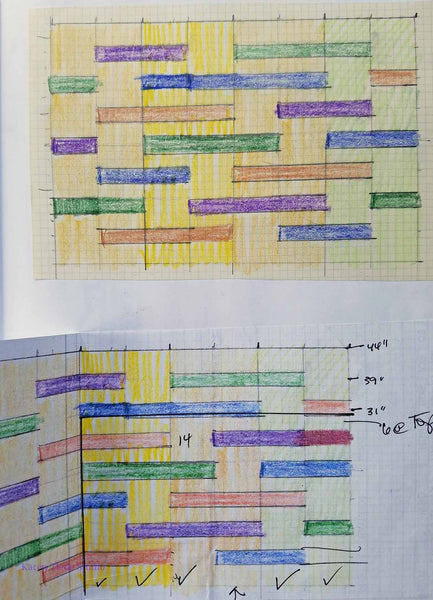 44"
39"
31"
6 @ Top
14